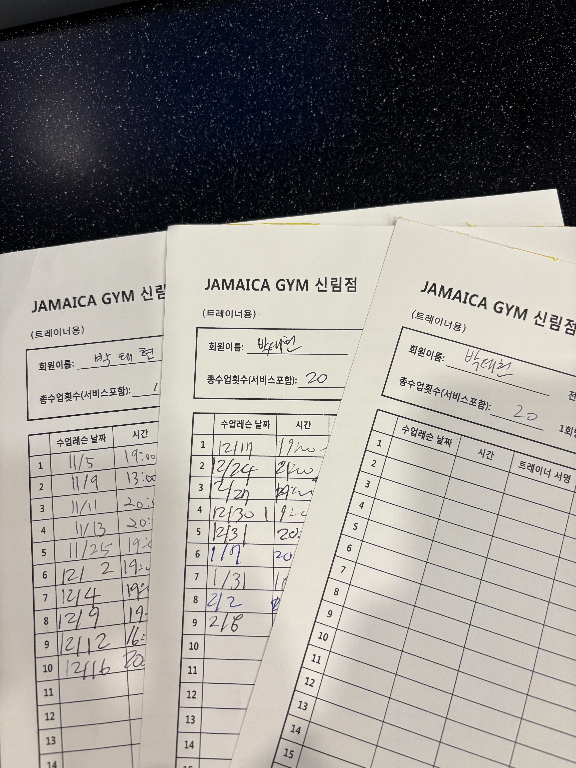 JAMAICA GYM 신림
(트레이너용)
회원이름: 박태현
총수업횟수(서비스포함): 1
수업레슨 날짜 시간
1 11/5 19:00
2 11/9 13:00
3 11/11 20:
4 11/13 20:
5 11/25 19:
6 12/2 19:
7 12/4 19:
8 12/9 19:
9 12/12 16:
10 12/16 20:
11
12
13
14
JAMAICA GYM 신림점
(트레이너용)
회원이름: 박태현
총수업횟수(서비스포함): 20
수업레슨 날짜 시간
1 12/17 19:00
2 12/24 21:00
3 12/27
4 12/30
5 12/31 20:
6 1/7 20
7 1/31
8 2/2
9 2/8
10
11
12
13
14
JAMAICA GYM 신림점
(트레이너용)
회원이름: 박태현
총수업횟수(서비스포함): 20
1회
수업레슨 날짜 시간 트레이너 서명
1
2
3
4
5
6
7
8
9
10
11
12
13
14
15